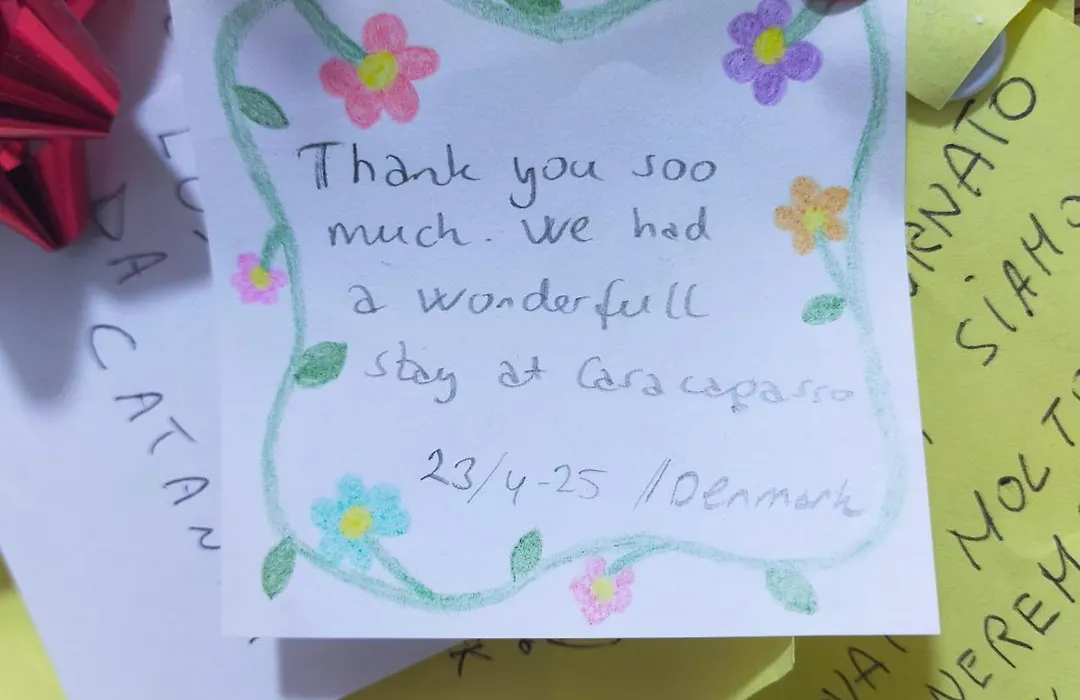 Thank you soo
much. We had
a wonderfull
stay at Casacapasso
23/4-25 //Denmark
DA CATAN
SIAMO
MOLTO